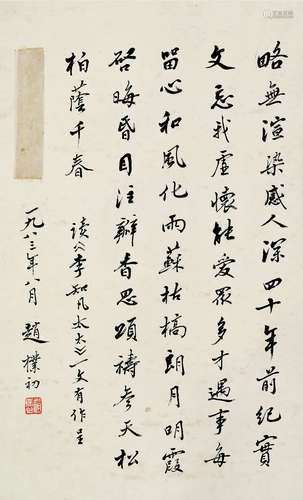 略無渲染感人深四十年前紀實
文忘我虛懷能愛眾多才遇事每
留心和風化雨蘇枯槁朗月明霞
啓晦昏目注辭香思頌禱參天松
柏蔭千春
讀《李知凡太太》一文有作呈
一九八三年八月 趙樸初